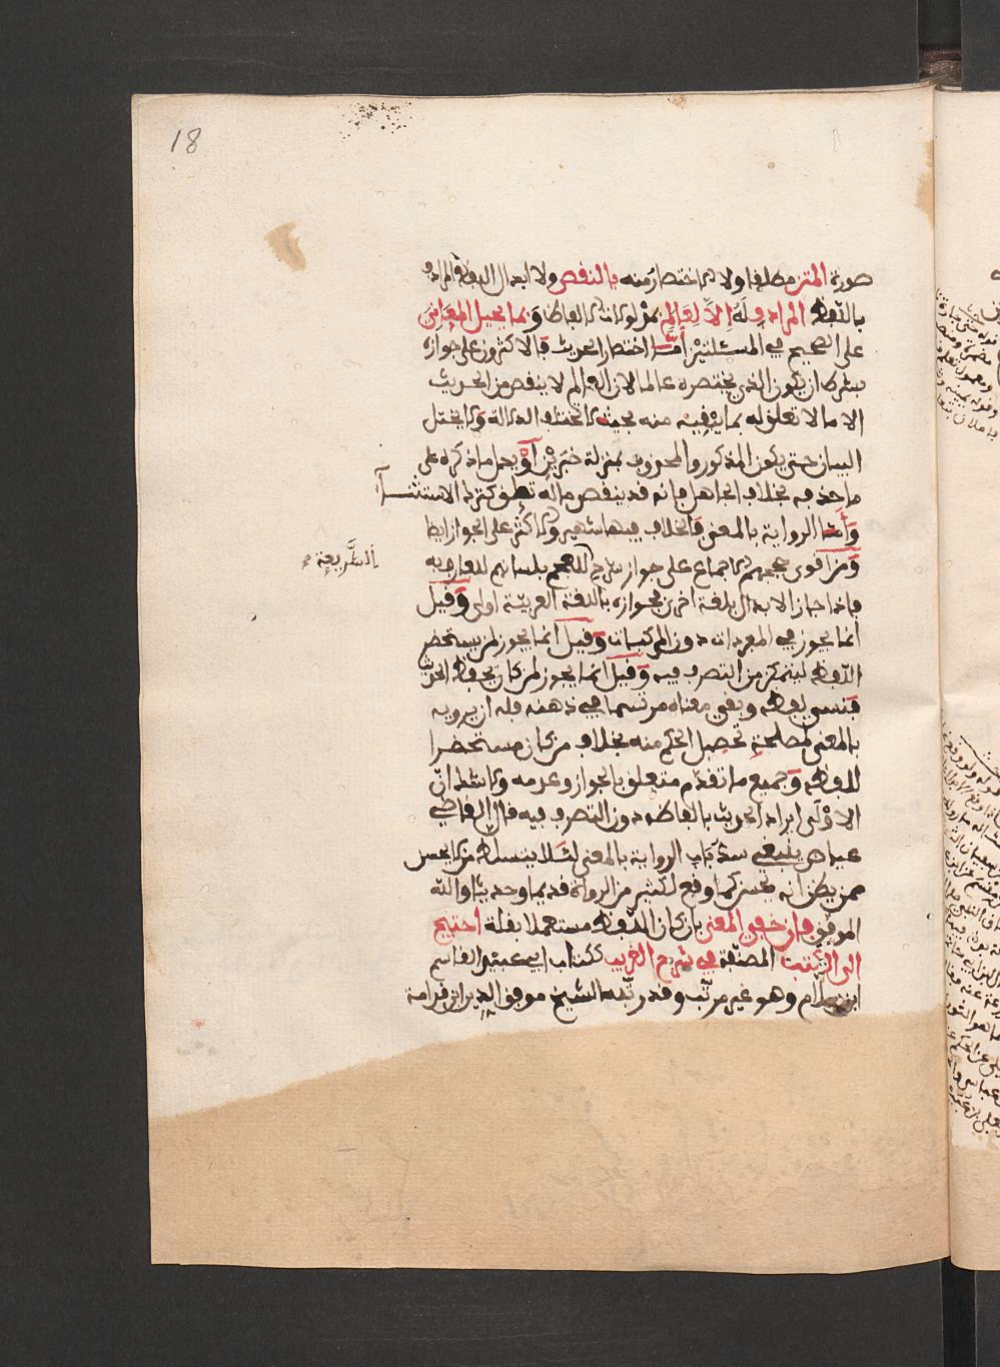 18
صورة المتن مطلقا ولا الاختصار منه بالنقص ولا ابدال اللفظ المرادف
باللفظ المرادف له إلا لعالم بمدلولات الالفاظ وبما يحيل المعاني
على الصحيح في المسئلتين أما اختصار الحديث فالاكثرون على جوازه
بشرط ان يكون الذي يختصره عالما لان العالم لا ينقص من الحديث
الا ما لا تعلق له بما يبقيه منه بحيث لا تختلف الدلالة ولا يختل
البيان حتى يكون المذكور والمحذوف بمنزلة خبرين أو يدل ما ذكره على
ما حذفه بخلاف الجاهل فإنه قد ينقص ما له تعلق كترك الاستثنآ
وأما الرواية بالمعنى فالخلاف فيها شهير والاكثر على الجواز ايضا
ومن اقوى حججهم الاجماع على جواز شرح للعجم بلسانهم للعارف به
الشريعة
فاذا جاز الابدال بلغة اخرى فجوازه باللغة العربية اولى وقيل
انما يجوز في المفردات دون المركبات وقيل انما يجوز لمن يستحضر
اللفظ ليتمكن من التصرف فيه وقيل انما يجوز لمن كان يحفظ الحديث
فنسي لفظه وبقي معناه مرتسما في ذهنه فله ان يرويه
بالمعنى لمصلحة تحصيل الحكم منه بخلاف من كان مستحضرا
للفظه وجميع ما تقدم متعلق بالجواز وعدمه ولا شك ان
الاولى ايراد الحديث بالفاظه دون التصرف فيه قال القاضي
عياض ينبغي سد باب الرواية بالمعنى لئلا يتسلط من لا يحسن
ممن يظن انه يحسن كما وقع لكثير من الرواة قديما وحديثا والله
الموفق فإن خفي المعنى بان كان اللفظ مستعملا بقلة احتيج
الى الكتب المصنفة في شرح الغريب ككتاب ابي عبيد القاسم
ابن سلام وهو غير مرتب وقد رتبه الشيخ موفق الدين ابن قدامة